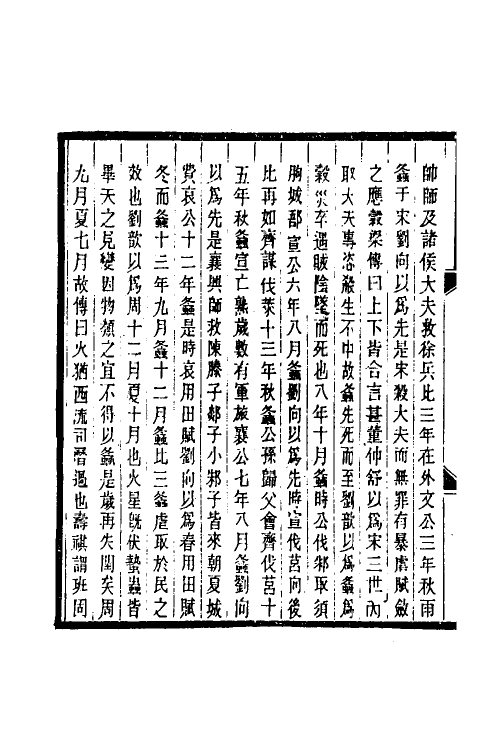 帥師及諸侯大夫救徐兵比三年在外文公三年秋雨
螽于宋劉向以爲先是宋殺大夫而無罪有暴虐賦斂
之應穀梁傳曰上下皆合言甚董仲舒以爲宋三世內
取大夫專恣殺生不中故螽先死而至劉歆以爲螽爲
穀災卒遇賊陰墜而死也八年十月螽時公伐邾取須
朐城郚宣公六年八月螽劉向以爲先時宣伐莒向後
比再如齊謀伐萊十三年秋螽公孫歸父會齊伐莒十
五年秋螽宣亡熟歲數有軍旅襄公七年八月螽劉向
以爲先是襄興師救陳滕子郯子小邾子皆來朝夏城
費哀公十二年螽是時哀用田賦劉向以爲春用田賦
冬而螽十三年九月螽十二月螽比三螽虐取於民之
效也劉歆以爲周十二月夏十月也火星旣伏蟄蟲皆
畢天之見變因物類之宜不得以螽是歲再失閏矣周
九月夏七月故傳曰火猶西流司曆過也壽祺謂班固